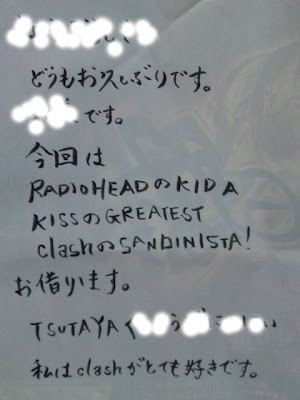 どうもお久しぶりです。
です。
今回は
RADIOHEADのKID A
KISSのGREATEST
clashのSANDINISTA!
お借ります。
TSUTAYA
私はclashがとても好きです。